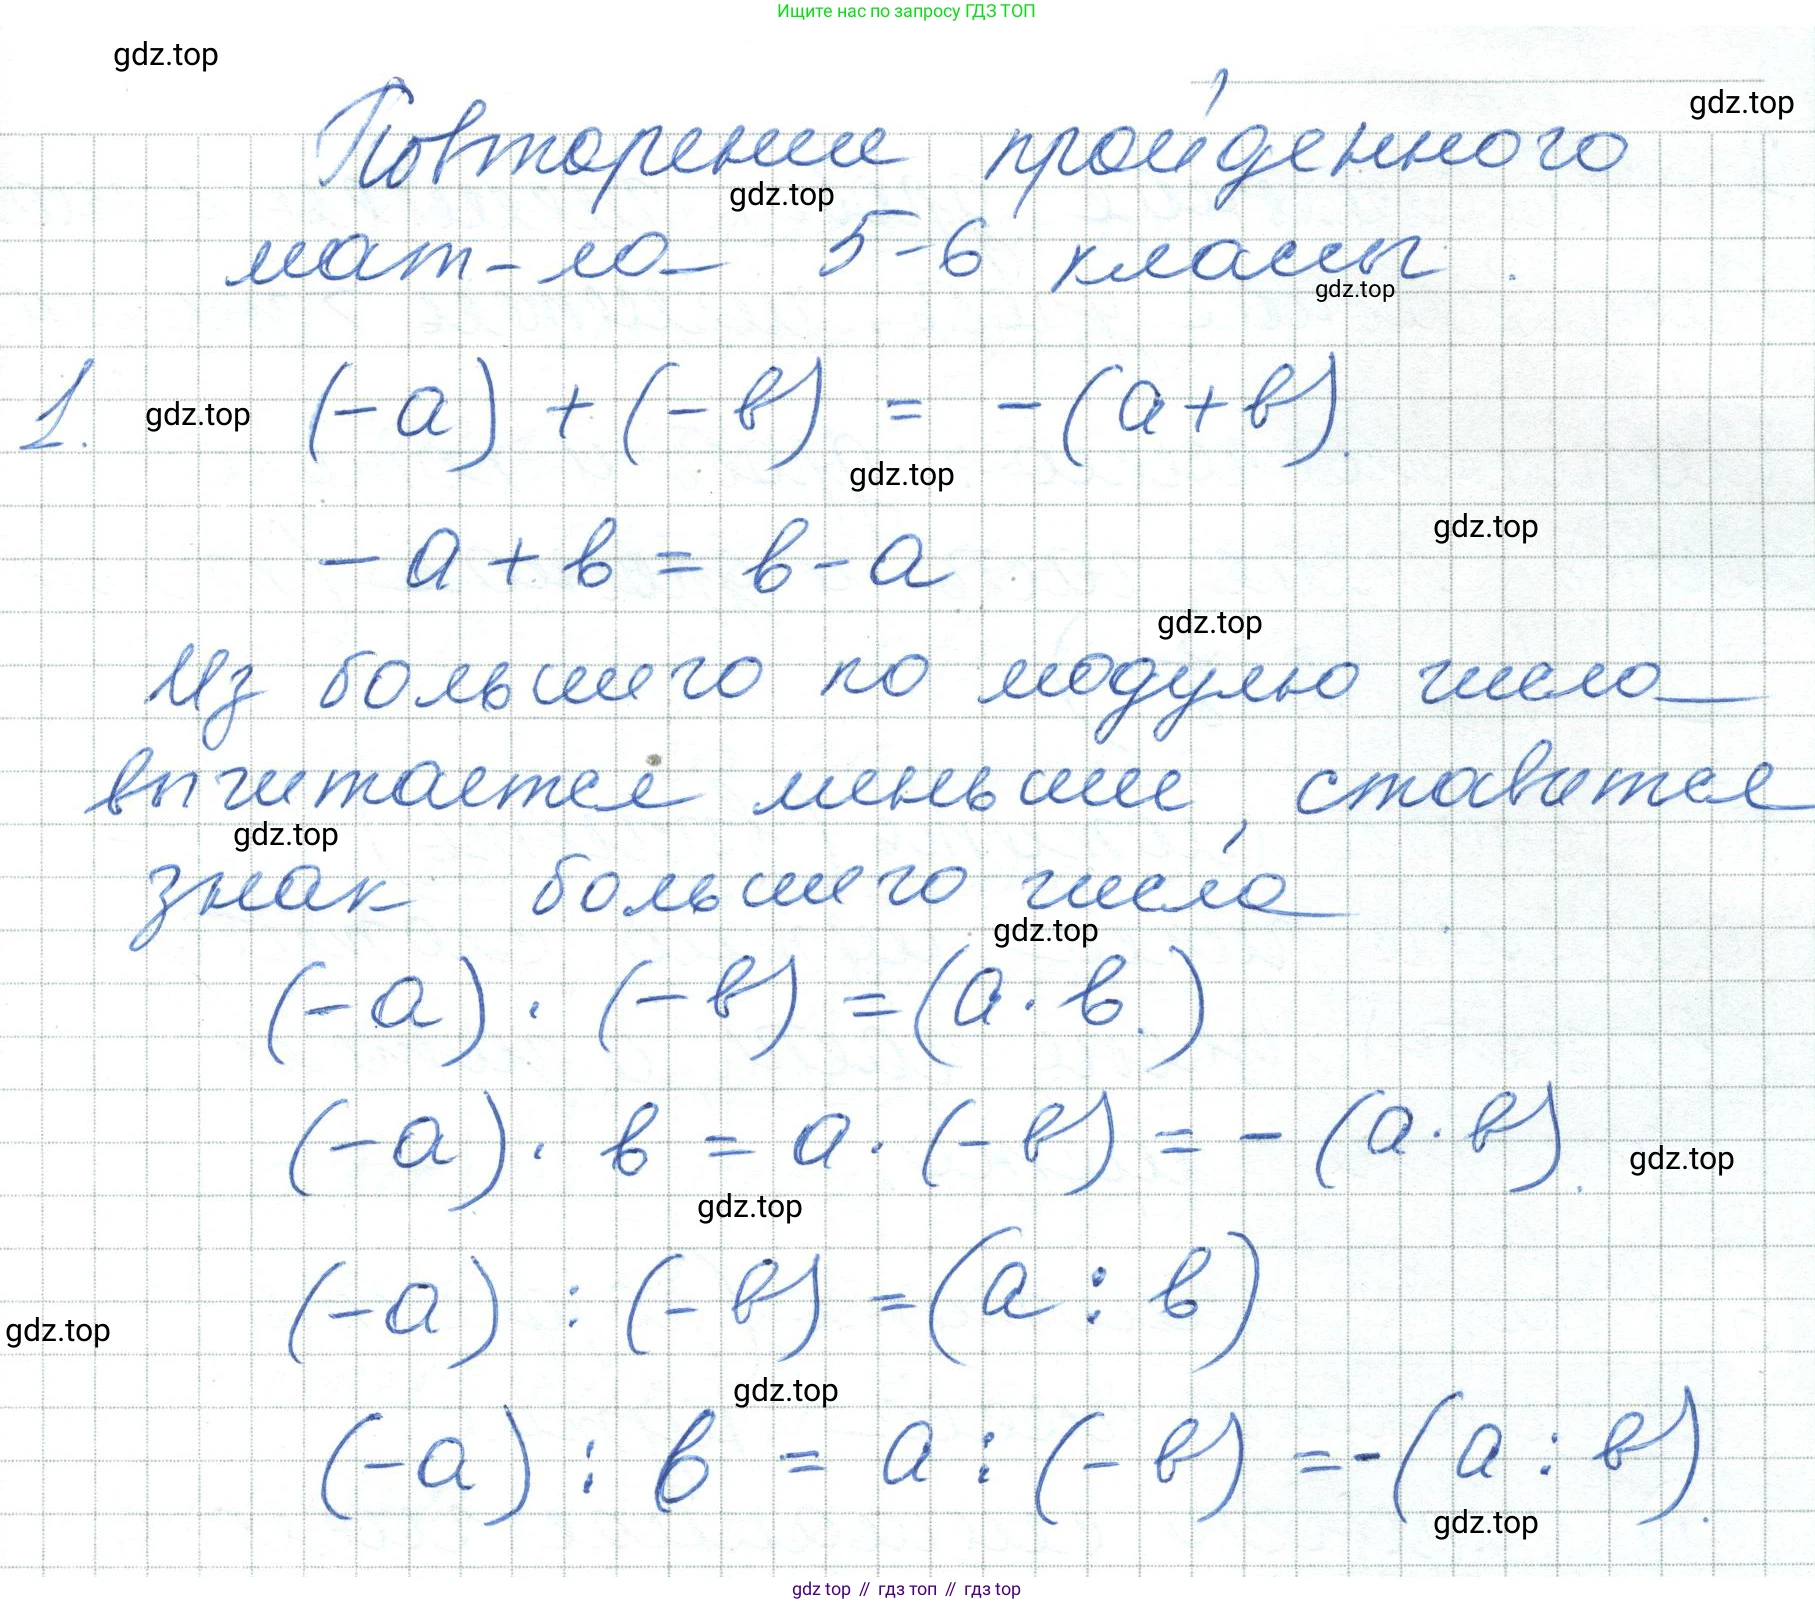 Ищите нас по запросу ГДЗ ТОП
gdz.top
gdz.top
Повторение пройденного
gdz.top
мат-ла 5-6 классы.
gdz.top
1. (-а) + (-в) = -(а+в).
gdz.top
gdz.top
gdz.top
-а+в = в-а
gdz.top
Из большего по модулю числа
вычитается меньшее, ставится
gdz.top
знак большего числа
gdz.top
(-а) · (-в) = (а · в.)
(-а) · в = а · (-в) = - (а · в).
gdz.top
gdz.top
(-а) : (-в) = (а : в)
gdz.top
gdz.top
(-а) : в = а : (-в) = -(а : в).
gdz.top
gdz top // гдз топ // гдз top